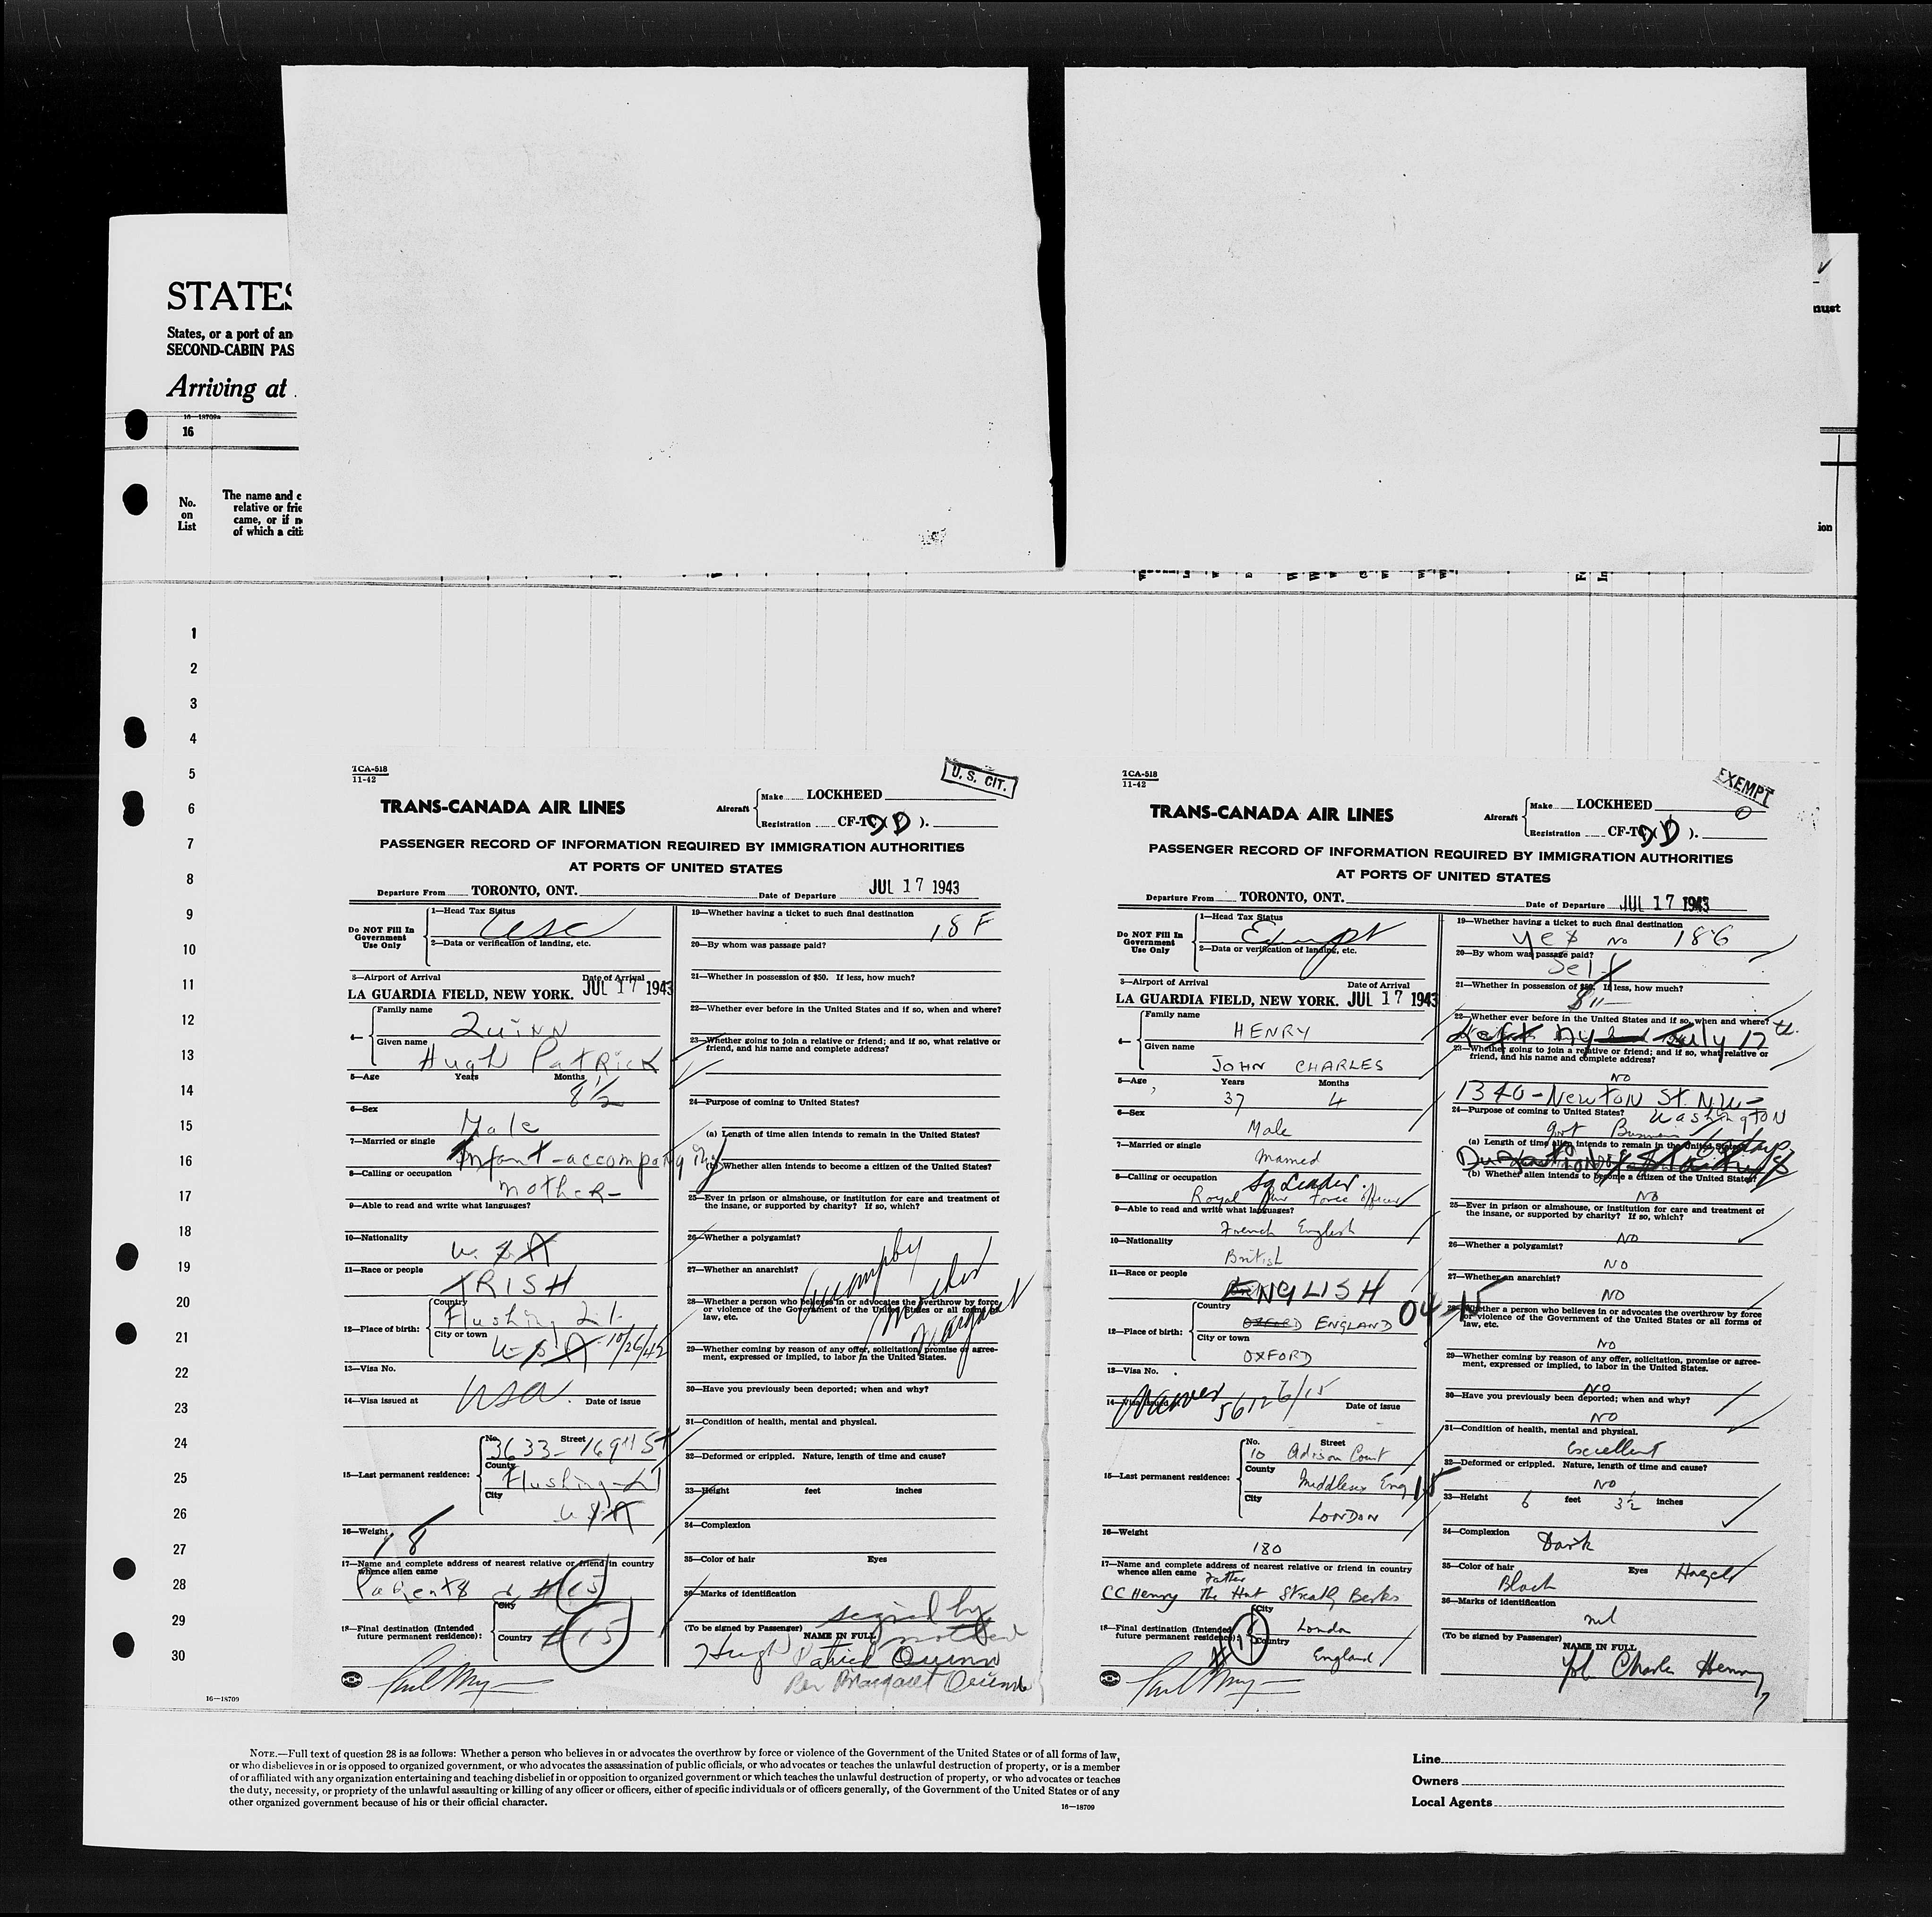 STATES
States, or a port of an
SECOND-CABIN PAS
Arriving at
16—18709a
16
No.
on
List
The name and c
relative or frie
came, or if n
of which a citi
must
ion
1
2
3
4
5
6
7
8
9
10
11
12
13
14
15
16
17
18
19
20
21
22
23
24
25
26
27
28
29
30
16—18709
TCA-518
11-42
U. S. CIT.
TRANS-CANADA AIR LINES
Aircraft
Make LOCKHEED
Registration CF-TC( D ).
PASSENGER RECORD OF INFORMATION REQUIRED BY IMMIGRATION AUTHORITIES
AT PORTS OF UNITED STATES
Departure From TORONTO, ONT. Date of Departure JUL 17 1943
Do NOT Fill In
Government
Use Only
1—Head Tax Status
USC
2—Data or verification of landing, etc.
3—Airport of Arrival Date of Arrival
LA GUARDIA FIELD, NEW YORK. JUL 17 1943
4— Family name
QUINN
Given name
Hugh PATRICK
5—Age Years Months
8 1/2
6—Sex
Male
7—Married or single
Infant-accompanying
8—Calling or occupation
mother-
9—Able to read and write what languages?
10—Nationality
U.S.A
11—Race or people
IRISH
12—Place of birth:
Country
Flushing L.I.
City or town
U-S.A 10/26/42
13—Visa No.
USA.
14—Visa issued at Date of issue
15—Last permanent residence:
No. Street
3633-169th St
County
Flushing-LI
City
USA
16—Weight
18
17—Name and complete address of nearest relative or friend in country
whence alien came
Parents #15
18—Final destination (Intended
future permanent residence):
City
Country
#15
19—Whether having a ticket to such final destination
18 F
20—By whom was passage paid?
21—Whether in possession of $50. If less, how much?
22—Whether ever before in the United States and if so, when and where?
23—Whether going to join a relative or friend; and if so, what relative or
friend, and his name and complete address?
24—Purpose of coming to United States?
(a) Length of time alien intends to remain in the United States?
(b) Whether alien intends to become a citizen of the United States?
25—Ever in prison or almshouse, or institution for care and treatment of
the insane, or supported by charity? If so, which?
26—Whether a polygamist?
27—Whether an anarchist?
Accompby
Mother
Margaret
28—Whether a person who believes in or advocates the overthrow by force
or violence of the Government of the United States or all forms of
law, etc.
29—Whether coming by reason of any offer, solicitation, promise or agree-
ment, expressed or implied, to labor in the United States.
30—Have you previously been deported; when and why?
31—Condition of health, mental and physical.
32—Deformed or crippled. Nature, length of time and cause?
33—Height feet inches
34—Complexion
35—Color of hair Eyes
36—Marks of identification
signed by
mother
(To be signed by Passenger) NAME IN FULL
Hugh Patrick Quinn
Per Margaret Quinn
TCA-518
11-42
EXEMPT
TRANS-CANADA AIR LINES
Aircraft
Make LOCKHEED
Registration CF-TC( D ).
PASSENGER RECORD OF INFORMATION REQUIRED BY IMMIGRATION AUTHORITIES
AT PORTS OF UNITED STATES
Departure From TORONTO, ONT. Date of Departure JUL 17 1943
Do NOT Fill In
Government
Use Only
1—Head Tax Status
Exempt
2—Data or verification of landing, etc.
3—Airport of Arrival Date of Arrival
LA GUARDIA FIELD, NEW YORK. JUL 17 1943
4— Family name
HENRY
Given name
JOHN CHARLES
5—Age Years Months
37 4
6—Sex
Male
7—Married or single
Married
8—Calling or occupation
Sq Leader.
Royal Air Force officer
9—Able to read and write what languages?
French English
10—Nationality
British
11—Race or people
ENGLISH
12—Place of birth:
Country
OXFORD ENGLAND
04-15
City or town
OXFORD
13—Visa No.
Waiver 56126/15
14—Visa issued at Date of issue
15—Last permanent residence:
No. Street
10 Adison Court
County
Middlesex Eng
City
LONDON
16—Weight
180
17—Name and complete address of nearest relative or friend in country
whence alien came
Father
CC Henry The Hut Streatly Berks
18—Final destination (Intended
future permanent residence):
#15
City
London
Country
England
19—Whether having a ticket to such final destination
yes NO 18-6
20—By whom was passage paid?
Self
21—Whether in possession of $50. If less, how much?
22—Whether ever before in the United States and if so, when and where?
Left ny July 17th
23—Whether going to join a relative or friend; and if so, what relative or
friend, and his name and complete address?
NO
1340-Newton St. N.W-
24—Purpose of coming to United States?
Washington
Govt Business
(a) Length of time alien intends to remain in the United States?
(b) Whether alien intends to become a citizen of the United States?
NO
25—Ever in prison or almshouse, or institution for care and treatment of
the insane, or supported by charity? If so, which?
NO
26—Whether a polygamist?
NO
27—Whether an anarchist?
NO
28—Whether a person who believes in or advocates the overthrow by force
or violence of the Government of the United States or all forms of
law, etc.
NO
29—Whether coming by reason of any offer, solicitation, promise or agree-
ment, expressed or implied, to labor in the United States.
NO
30—Have you previously been deported; when and why?
NO
31—Condition of health, mental and physical.
Excellent
32—Deformed or crippled. Nature, length of time and cause?
NO
33—Height 6 feet 3½ inches
34—Complexion
Dark
35—Color of hair Eyes
Black Hazel
36—Marks of identification
nil
(To be signed by Passenger)
NAME IN FULL
John Charles Henry
NOTE.—Full text of question 28 is as follows: Whether a person who believes in or advocates the overthrow by force or violence of the Government of the United States or of all forms of law,
or who disbelieves in or is opposed to organized government, or who advocates the assassination of public officials, or who advocates or teaches the unlawful destruction of property, or is a member
of or affiliated with any organization entertaining and teaching disbelief in or opposition to organized government or which teaches the unlawful destruction of property, or who advocates or teaches
the duty, necessity, or propriety of the unlawful assaulting or killing of any officer or officers, either of specific individuals or of officers generally, of the Government of the United States or of any
other organized government because of his or their official character.
16—18709
Line
Owners
Local Agents